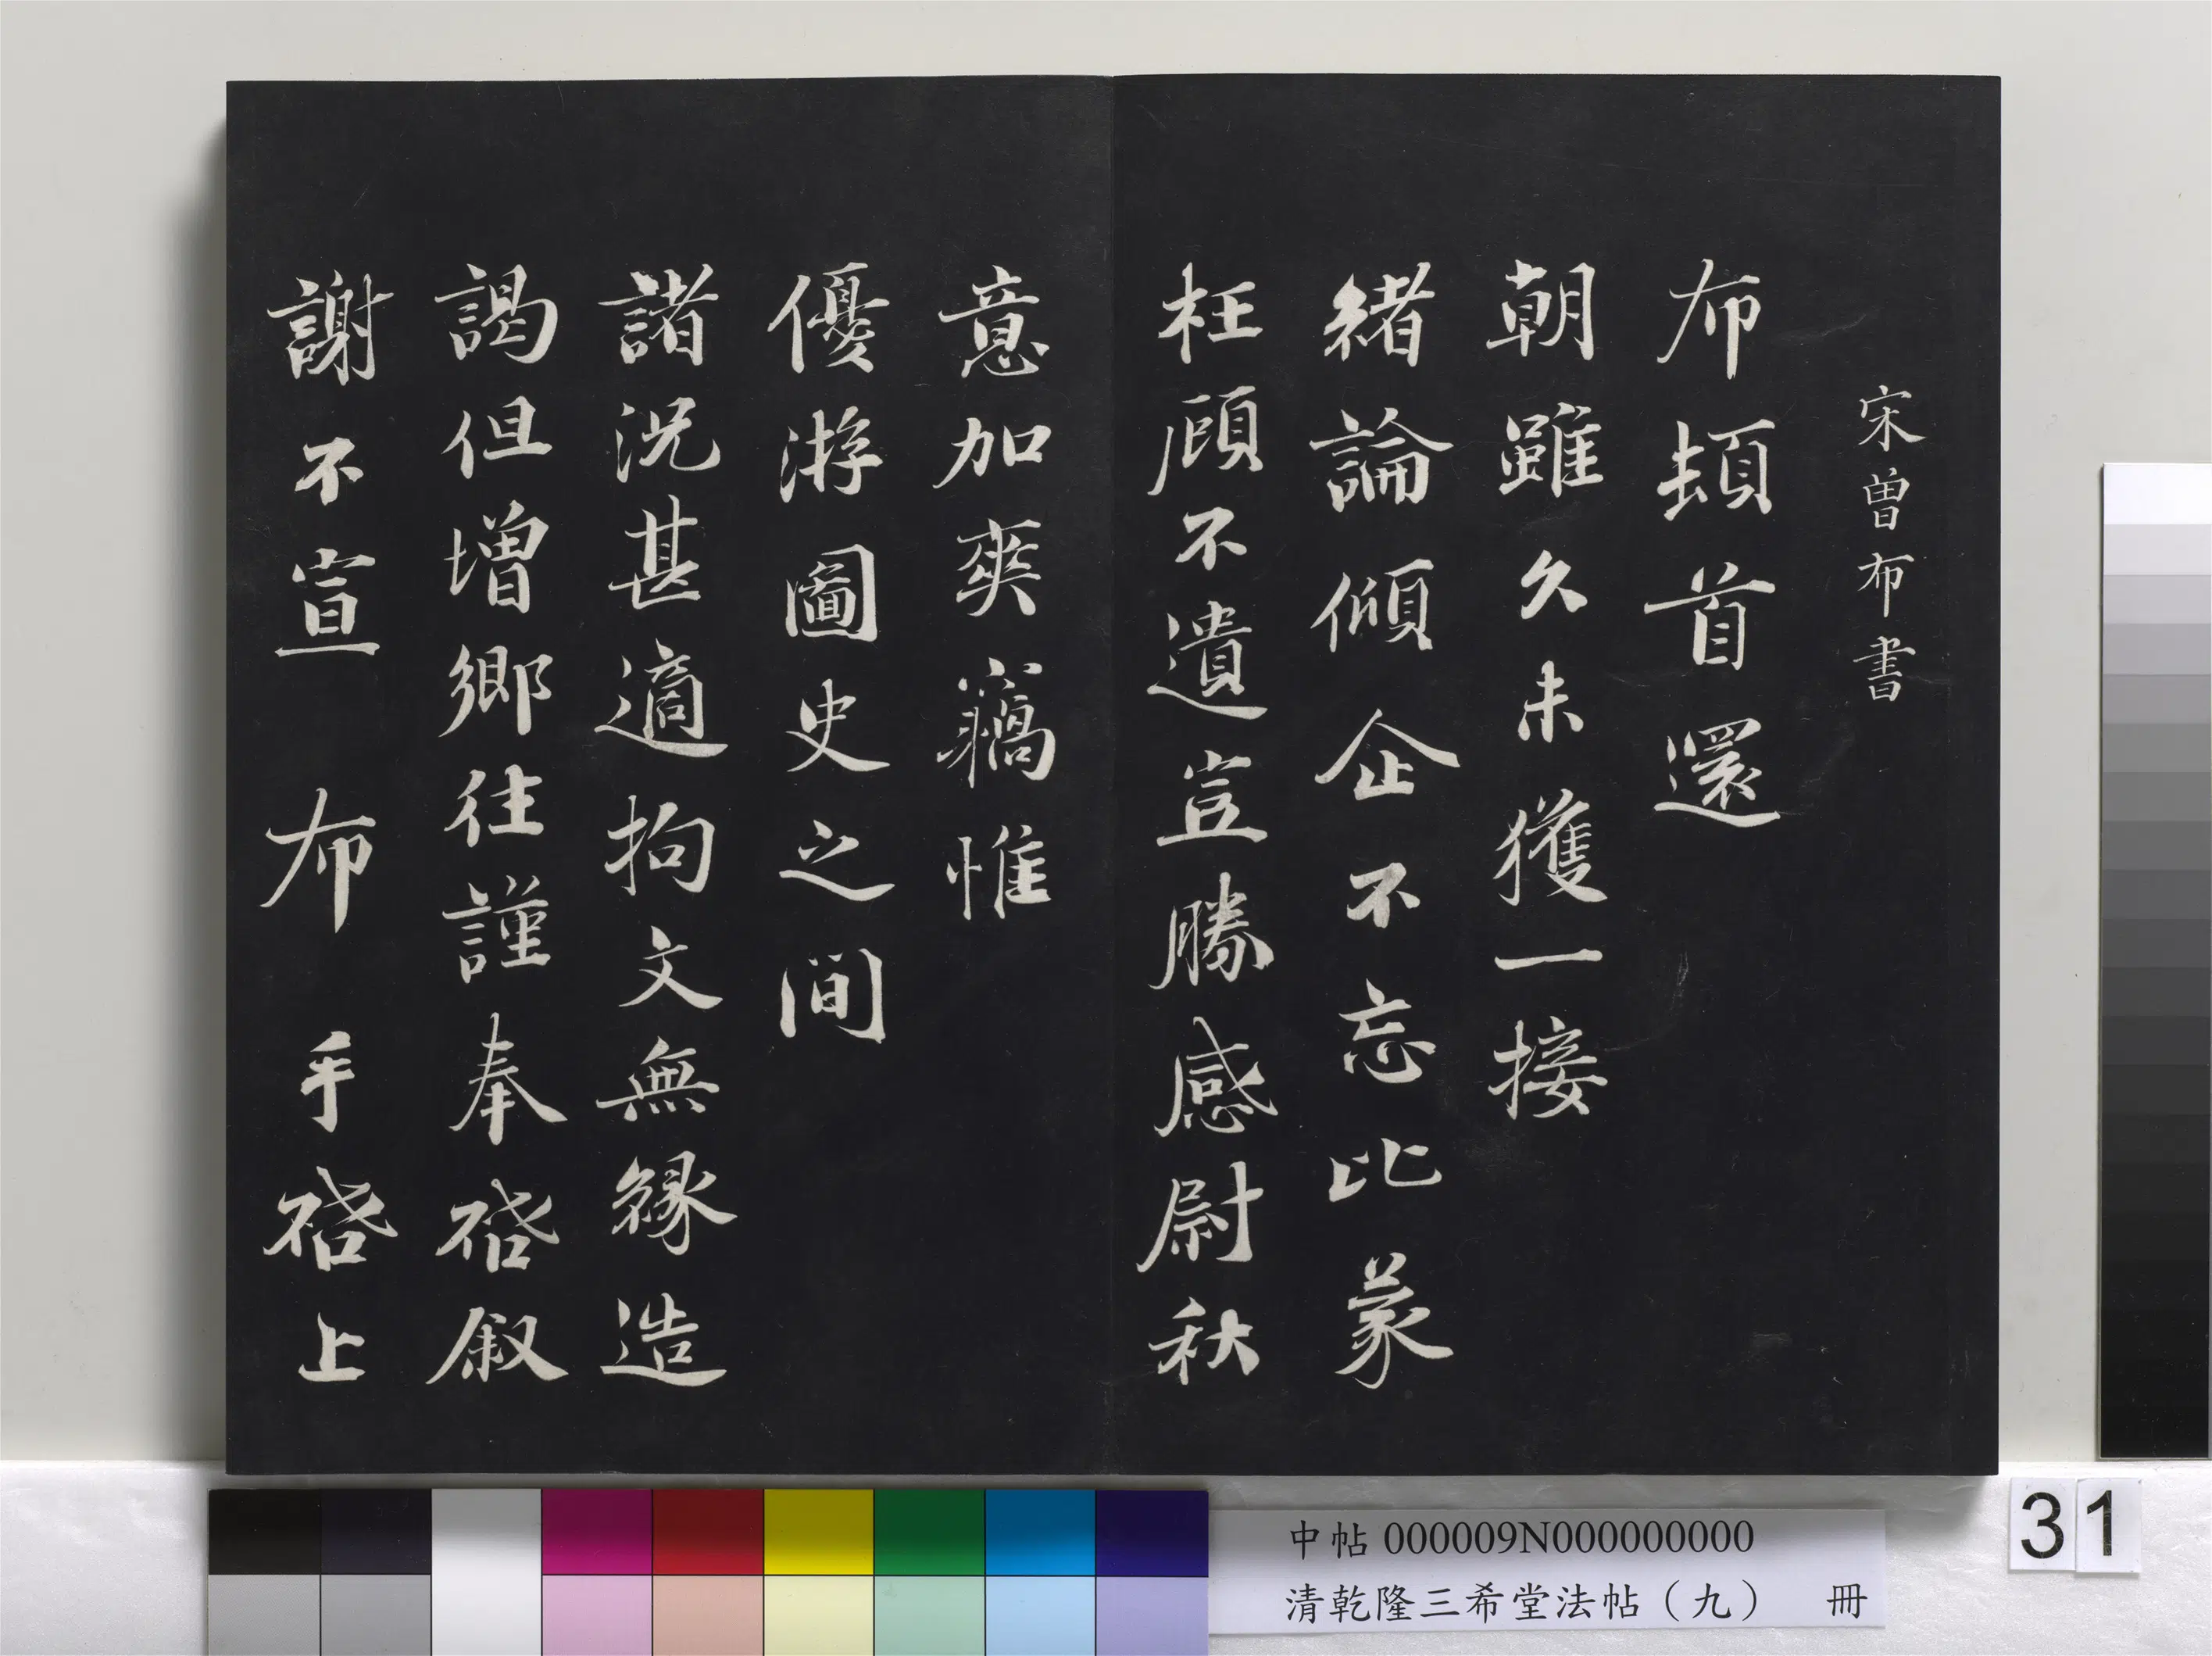 宋曽布書
布頓首還
朝雖久未獲一接
緒論傾企不忘比蒙
枉顧不遺豈勝感尉秋
意加爽竊惟
優游圖史之間
諸況甚適拘文無縁造
謁但增鄉往謹奉啓叙
謝不宣 布 手啓上
31
中帖 000009N000000000
清乾隆三希堂法帖（九） 冊